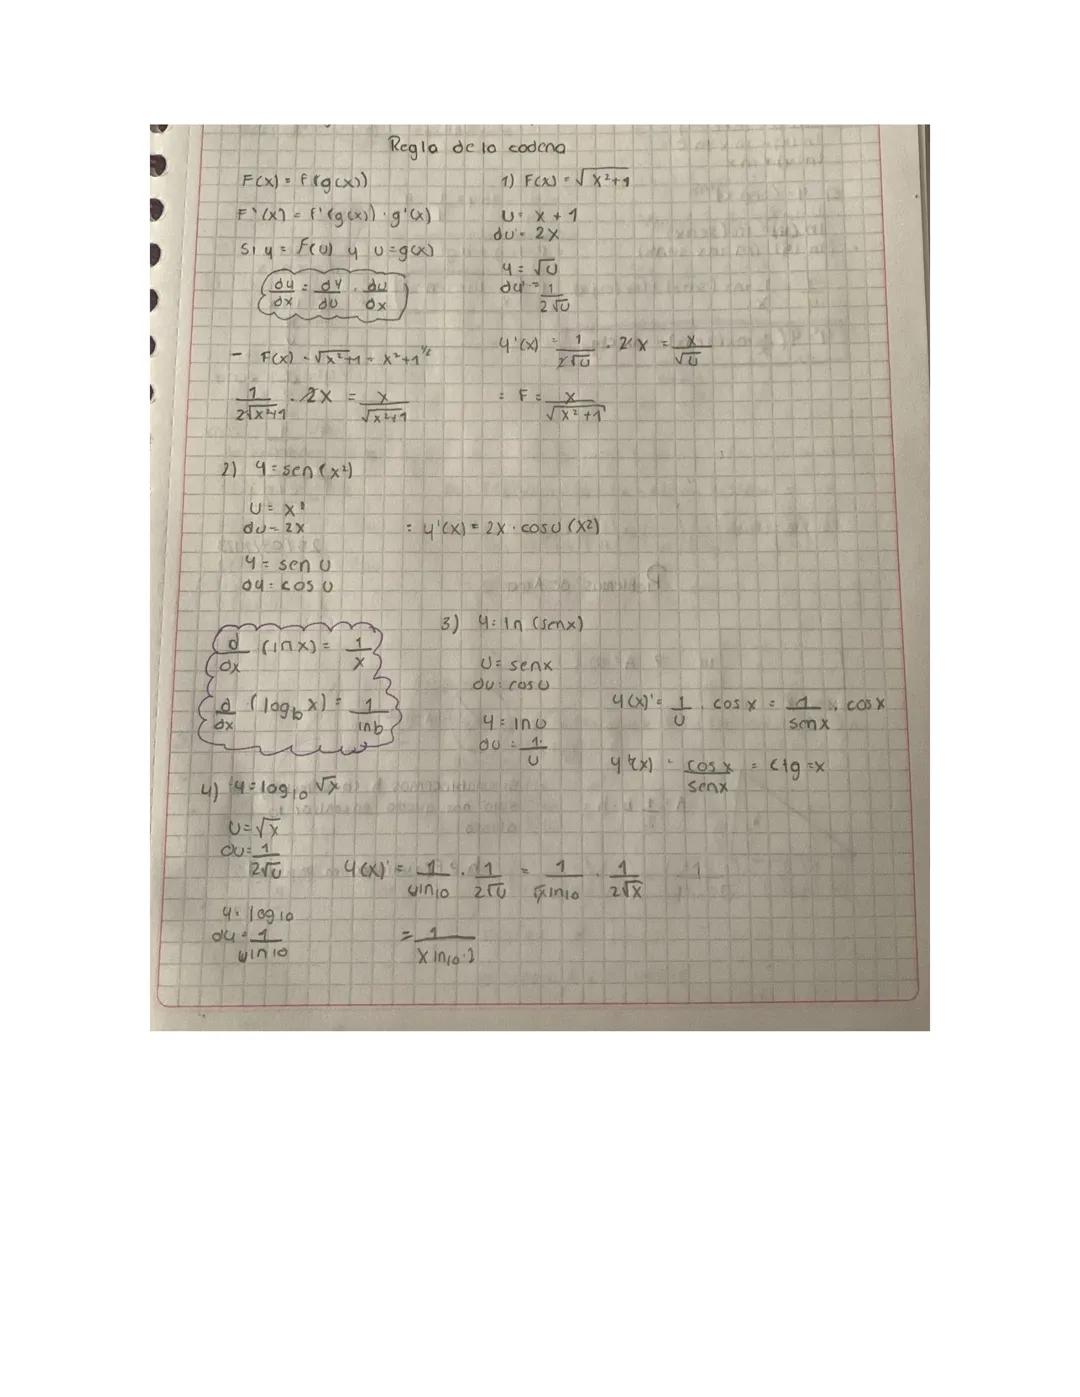 Regla de la cadena
F(x) = f(g(x))
F'(x) = f'(g(x)) · g'(x)
Si y = F(u) y u=g(x)
dy/dx = dy/du · du/dx
- F(x) = √x²+1 = x²+1^1/2
1/2√x²+1 · 2x = x/√x²+1
1) F(x) = √x²+1
u = x + 1
du = 2x
y = √u
dy = 1/2√u
y'(x) = 1/2√u · 2x = x/√u
= F = x/√x²+1
2) y = sen(x²)
u = x²
du = 2x
y = sen u
dy = cos u
= y'(x) = 2x · cosu (x2)
d/dx (ln x) = 1/x
d/dx (log_b x) = 1/ln b
3) y = ln (senx)
u = senx
du = cosu
y = lnu
du = 1/u
y(x)' = 1/u · cos x = 1/senx · cosx
y'(x) = cosx/senx = ctg =x
4) y = log₁₀ √x
u = √x
du = 1/2√u
y = log10
dy = 1/uln10
y(x)' = 1/uln10 · 1/2√u = 1/√xln10 · 1/2√x
= 1/x ln10·2